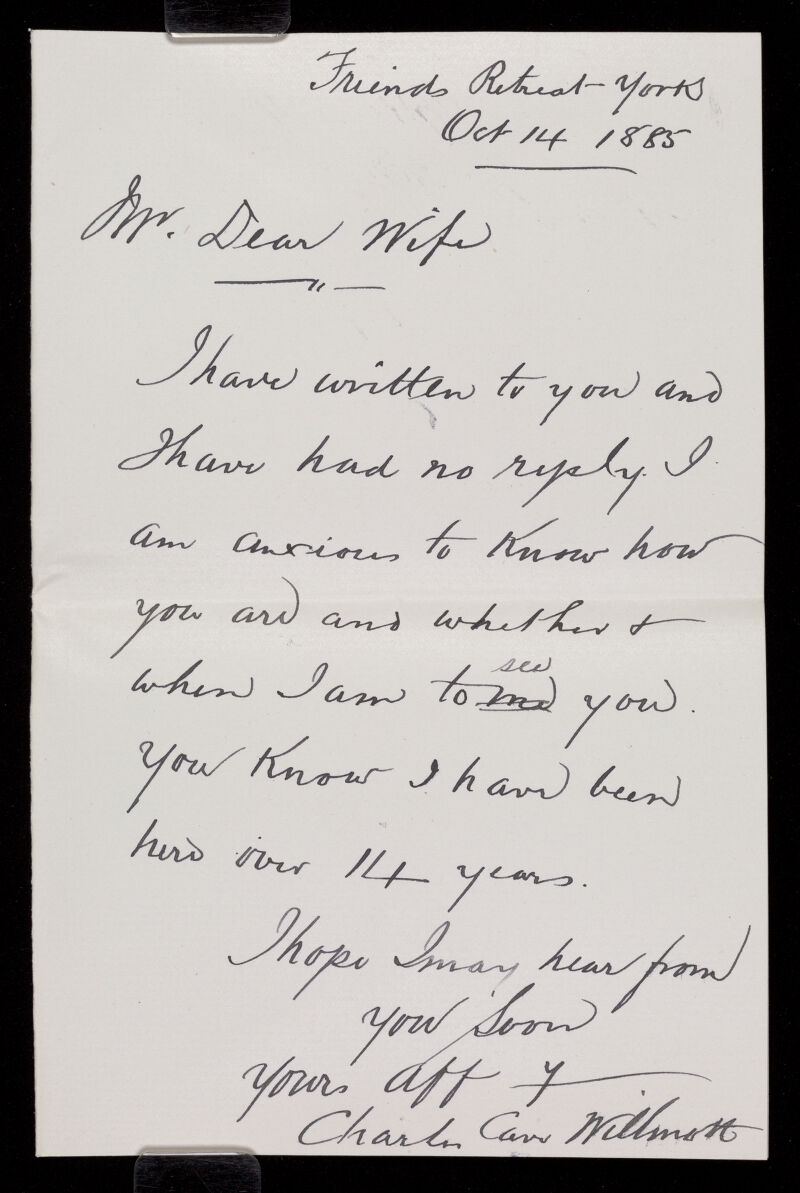 Friends Retreat York
Oct 14 1885
My. Dear Wife
I have written to you and
I have had no reply. I
am anxious to know how
you are and whether &
when I am to see you.
You know I have been
here over 14 years.
I hope I may hear from
you soon
yours aff y
Charles Cave Willmott